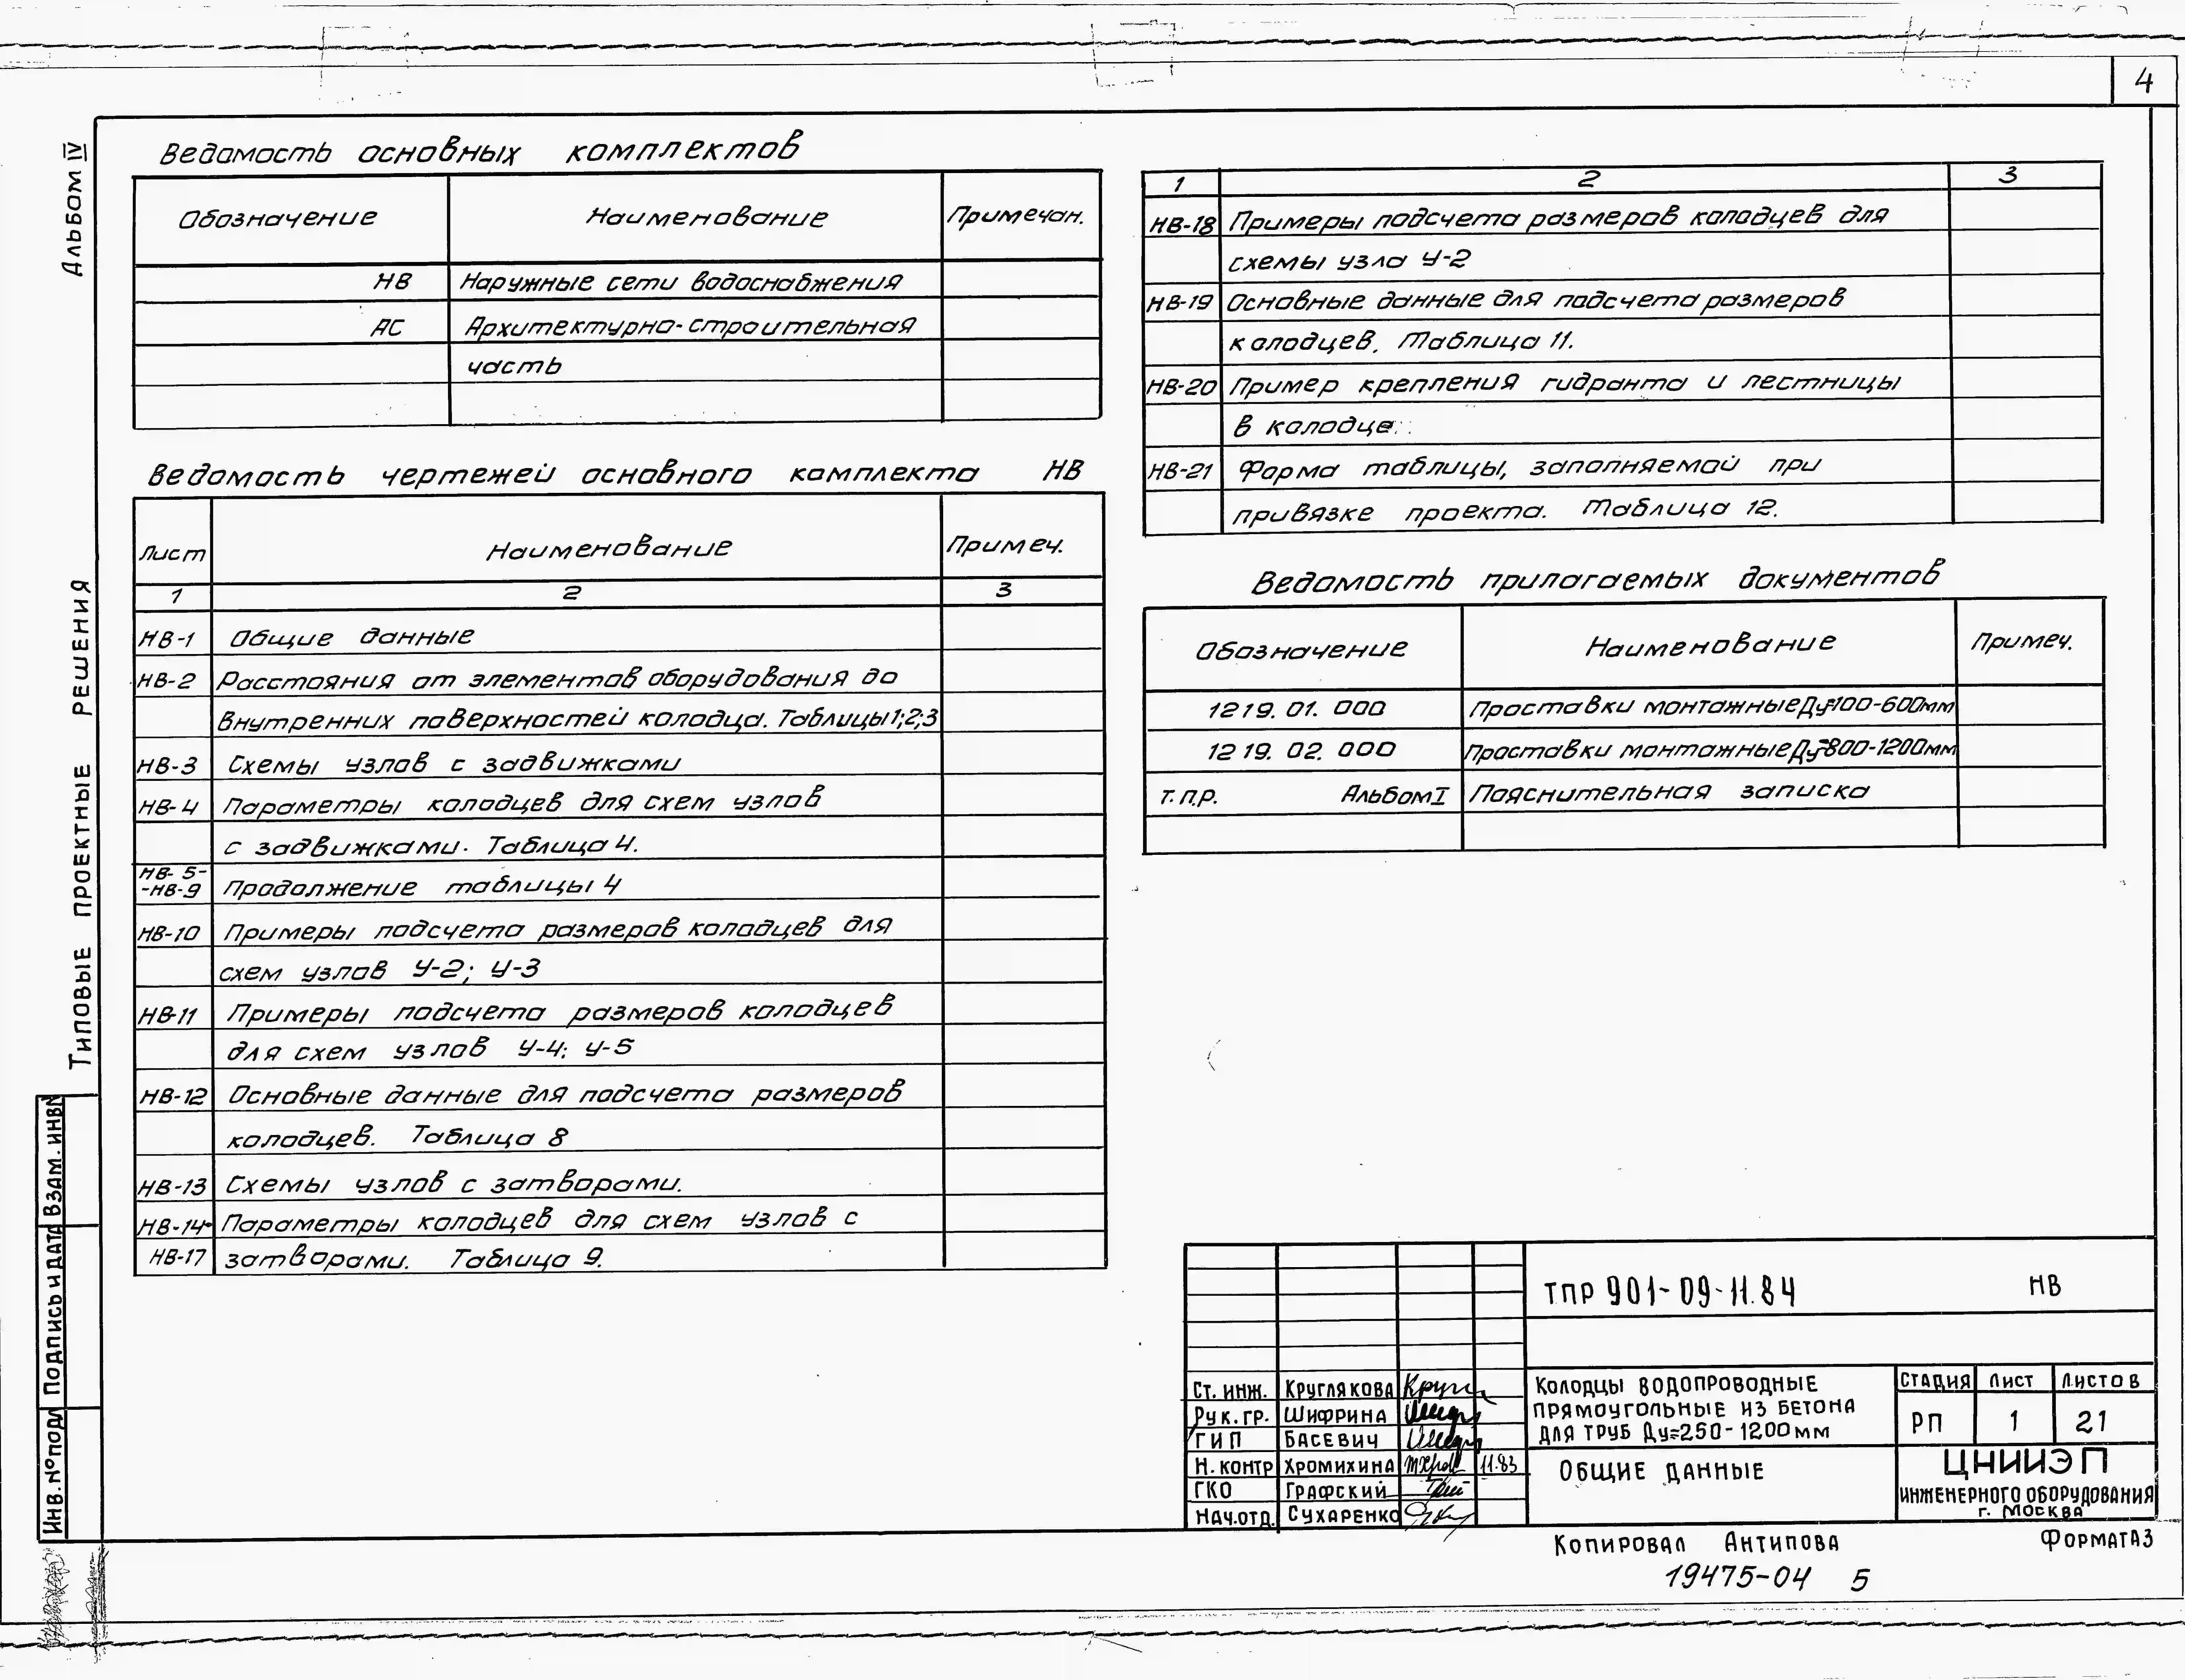 4
Альбом IV
Типовые проектные решения
Ведомость основных комплектов
Обозначение Наименование Примечан.
НВ Наружные сети водоснабжения
АС Архитектурно-строительная
часть
Ведомость чертежей основного комплекта НВ
Лист Наименование Примеч.
1 2 3
НВ-1 Общие данные
НВ-2 Расстояния от элементов оборудования до
внутренних поверхностей колодца. Таблицы 1;2;3
НВ-3 Схемы узлов с задвижками
НВ-4 Параметры колодцев для схем узлов
с задвижками. Таблица 4.
НВ-5-
-НВ-9 Продолжение таблицы 4
НВ-10 Примеры подсчета размеров колодцев для
схем узлов У-2; У-3
НВ-11 Примеры подсчета размеров колодцев
для схем узлов У-4; У-5
НВ-12 Основные данные для подсчета размеров
колодцев. Таблица 8
НВ-13 Схемы узлов с затворами.
НВ-14- Параметры колодцев для схем узлов с
НВ-17 затворами. Таблица 9.
1 2 3
НВ-18 Примеры подсчета размеров колодцев для
схемы узла У-2
НВ-19 Основные данные для подсчета размеров
колодцев. Таблица 11.
НВ-20 Пример крепления гидранта и лестницы
в колодце.
НВ-21 Форма таблицы, заполняемой при
привязке проекта. Таблица 12.
Ведомость прилагаемых документов
Обозначение Наименование Примеч.
1219. 01. 000 Проставки монтажные Ду=100-600мм
1219. 02. 000 Проставки монтажные Ду=800-1200мм
Т.П.Р. Альбом I Пояснительная записка
Инв.№подл Подпись и дата Взам. инв№
ТПР 901-09-11.84 НВ
Ст. инж. Круглякова
Рук. гр. Шифрина
ГИП Басевич
Н. контр Хромихина 11.83
ГКО Графский
Нач.отд. Сухаренко
Колодцы водопроводные
прямоугольные из бетона
для труб Ду=250-1200мм
Стадия Лист Листов
РП 1 21
Общие данные
ЦНИИЭП
инженерного оборудования
г. Москва
Копировал Антипова Формат А3
19475-04 5